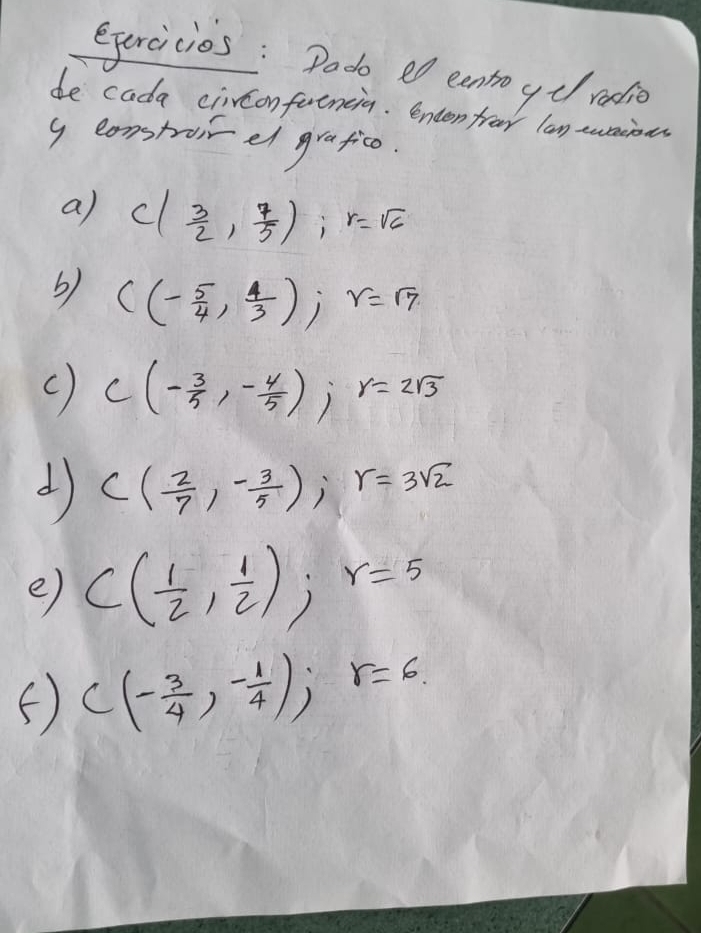 Ejercicios: Dado el centro y el radio
de cada circonferencia. Encontrar las ecuaciones
y construir el grafico.
a) C(3/2, 7/5); r=√6
b) C(-5/4, 4/3); r=√7
c) C(-3/5, -4/5); r=2√3
d) C(2/7, -3/5); r=3√2
e) C(1/2, 1/2); r=5
f) C(-3/4, -1/4); r=6.